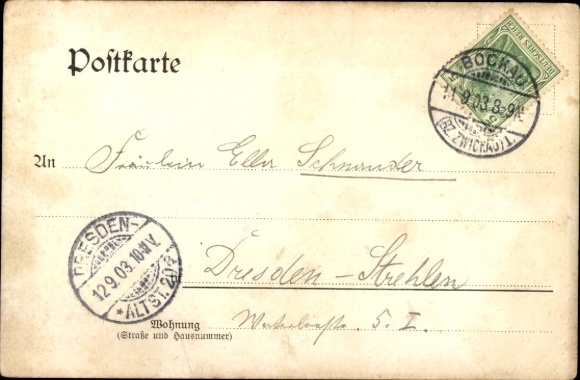 Postkarte
DEUTSCHES REICH
BOCKAU
11.9.03.8-9V.
(BZ. ZWICKAU) 1.
An Fräulein Ella Schnauder
DRESDEN-
12.9.03.10-11V.
*ALTST. 20
Dresden-Strehlen
Wohnung
(Straße und Hausnummer)
5. I.